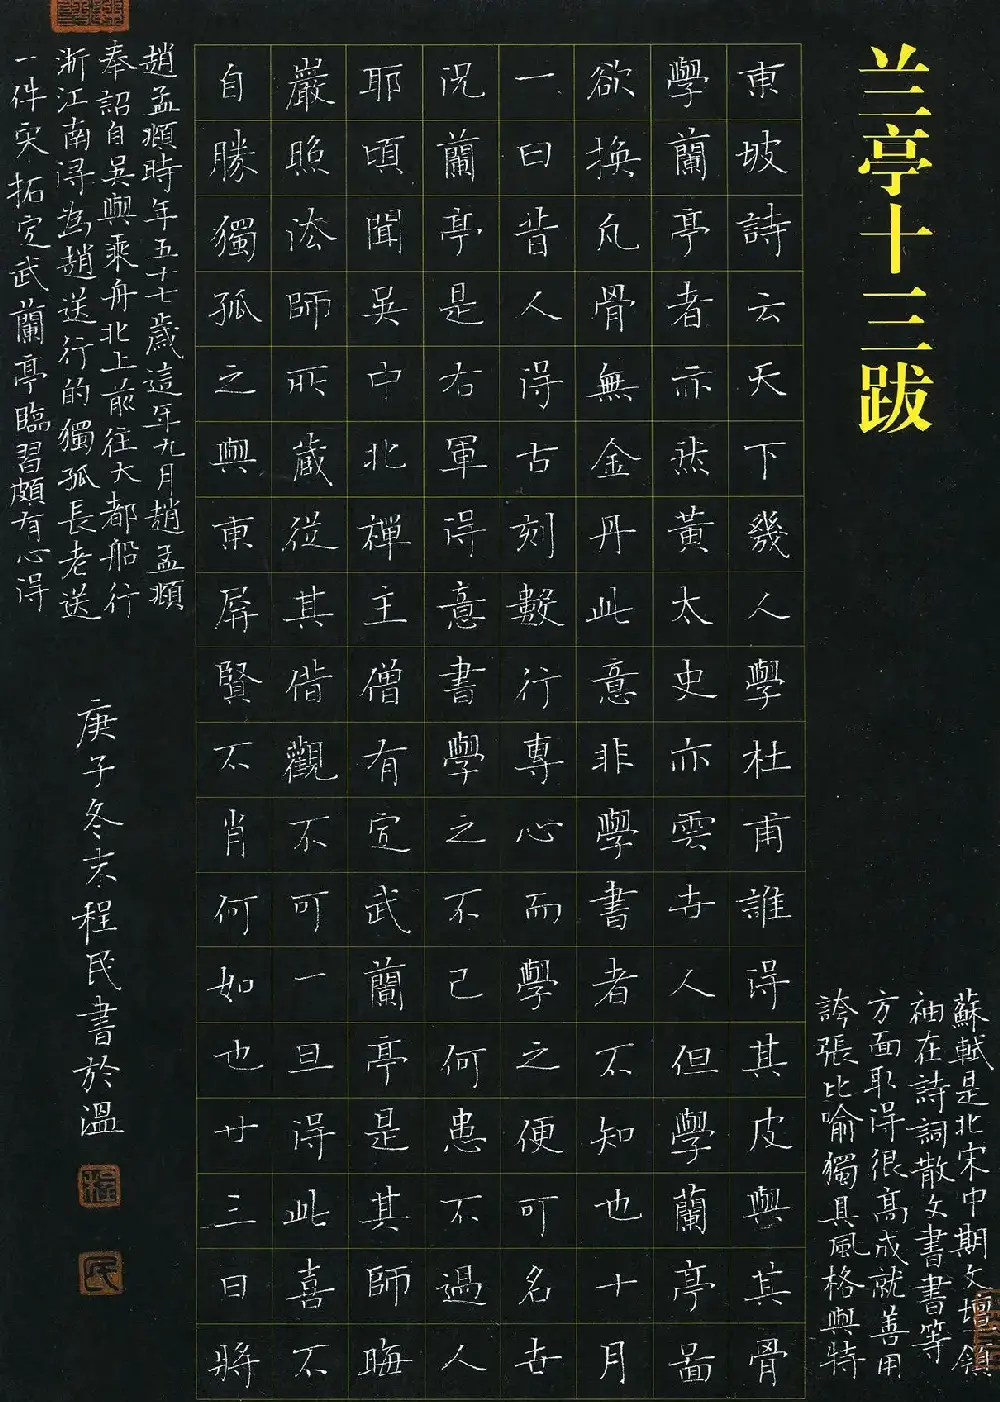 兰亭十三跋
蘇軾是北宋中期文壇領
袖在詩詞散文書書等
方面取得很高成就善用
誇張比喻獨具風格與特
東坡詩云天下幾人學杜甫誰得其皮與其骨
學蘭亭者亦然黃太史亦雲世人但學蘭亭面
欲換凡骨無金丹此意非學書者不知也十月
一日昔人得古刻數行專心而學之便可名世
況蘭亭是右軍得意書學之不已何患不過人
耶頃聞吳中北禪主僧有定武蘭亭是其師晦
巖照法師所蔵從其借觀不可一旦得此喜不
自勝獨孤之與東屏賢不肖何如也廿三日將
趙孟頫時年五十七歲這年九月趙孟頫
奉詔自吳興乘舟北上前往大都船行
浙江南潯為趙送行的獨孤長老送
一件宋拓定武蘭亭臨習頗有心得
庚子冬末程民書於溫
程
民